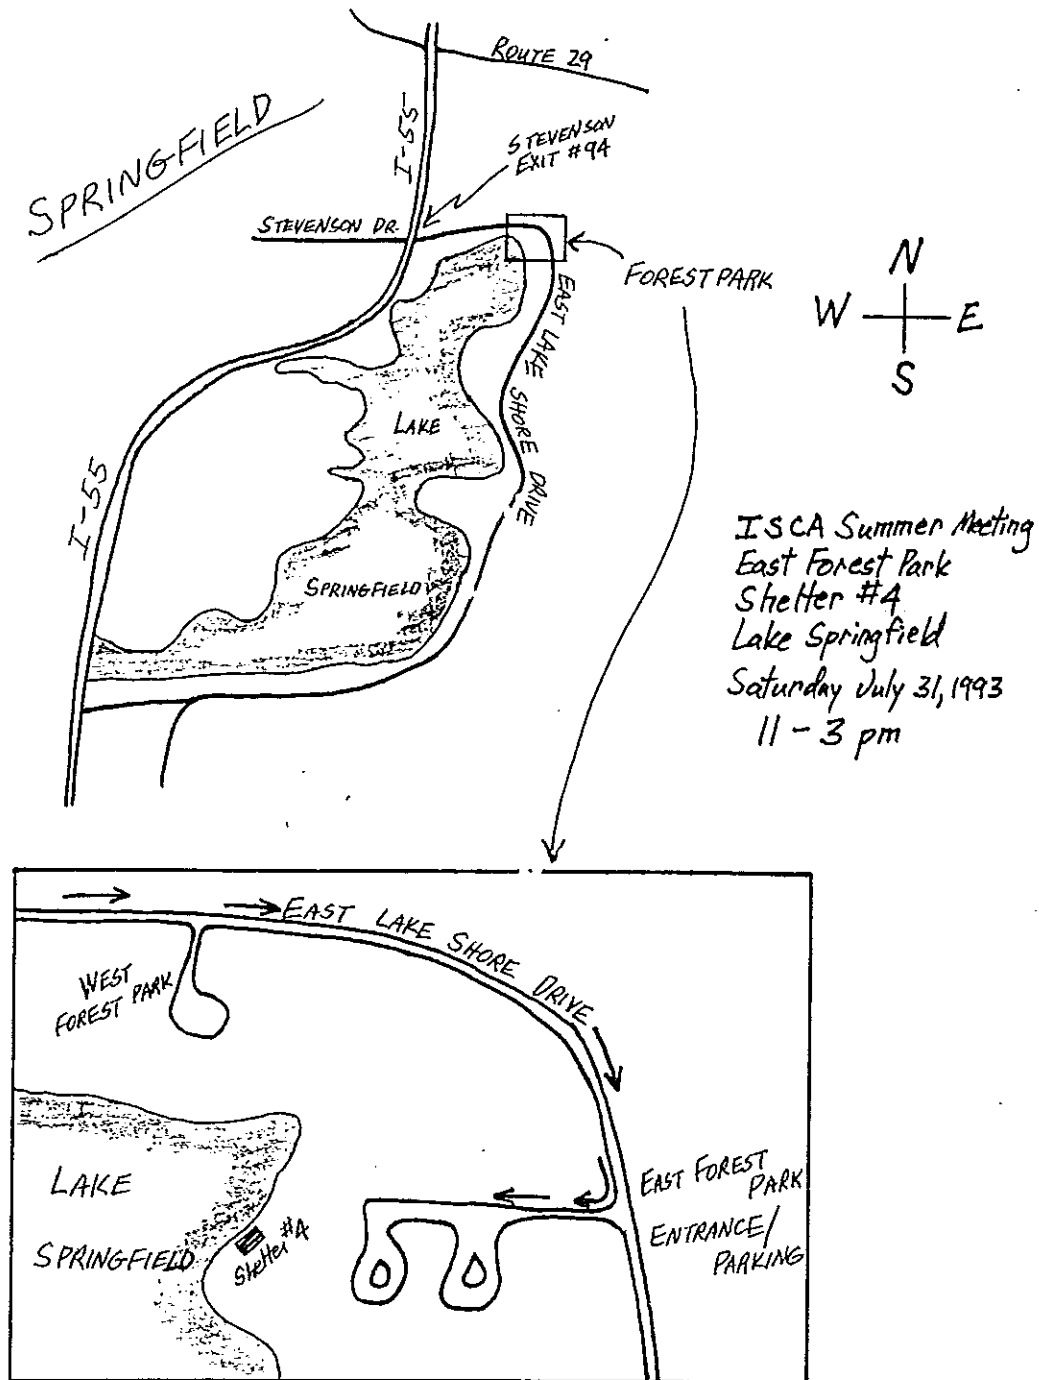 ROUTE 29
SPRINGFIELD
I-55
STEVENSON
EXIT #94
STEVENSON DR.
FOREST PARK
N
W E
S
EAST LAKE SHORE DRIVE
LAKE
I-55
SPRINGFIELD
ISCA Summer Meeting
East Forest Park
Shelter #4
Lake Springfield
Saturday July 31, 1993
11 - 3 pm
EAST LAKE SHORE DRIVE
WEST
FOREST PARK
LAKE
SPRINGFIELD
Shelter #4
EAST FOREST
PARK
ENTRANCE/
PARKING